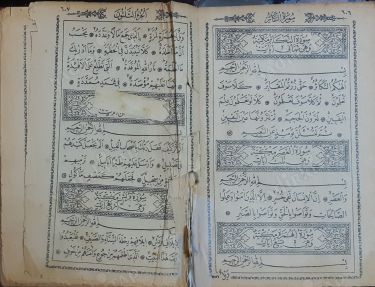 سورة التكاثر
سورة التكاثر مكية
وهي ثمان آيات
بسم الله الرحمن الرحيم
ألهيكم التكاثر حتى زرتم المقابر كلا سوف
تعلمون ثم كلا سوف تعلمون كلا لو تعلمون علم
اليقين لترون الجحيم ثم لترونها عين
اليقين ثم لتسئلن يومئذ عن النعيم
سورة العصر مكية
وهي ثلاث آيات
بسم الله الرحمن الرحيم
والعصر إن الإنسان لفي خسر إلا الذين آمنوا وعملوا
الصالحات وتواصوا بالحق وتواصوا بالصبر
سورة الهمزة مكية
وهي تسع آيات
بسم الله الرحمن الرحيم
ويل لكل همزة لمزة الذي جمع مالا وعدده يحسب
أن ماله أخلده كلا لينبذن في الحطمة وما أدريك
ما الحطمة نار الله الموقدة التي تطلع على الأفئدة
إنها عليهم مؤصدة في عمد ممددة
بسم الله الرحمن الرحيم
ألم تر كيف فعل ربك بأصحاب الفيل ألم يجعل كيدهم
في تضليل وأرسل عليهم طيرا أبابيل ترميهم
بحجارة من سجيل فجعلهم كعصف مأكول
سورة قريش مكية
وهي أربع آيات
بسم الله الرحمن الرحيم
لإيلاف قريش إيلافهم رحلة الشتاء والصيف فليعبدوا
رب هذا البيت الذي أطعمهم من جوع وآمنهم من خوف